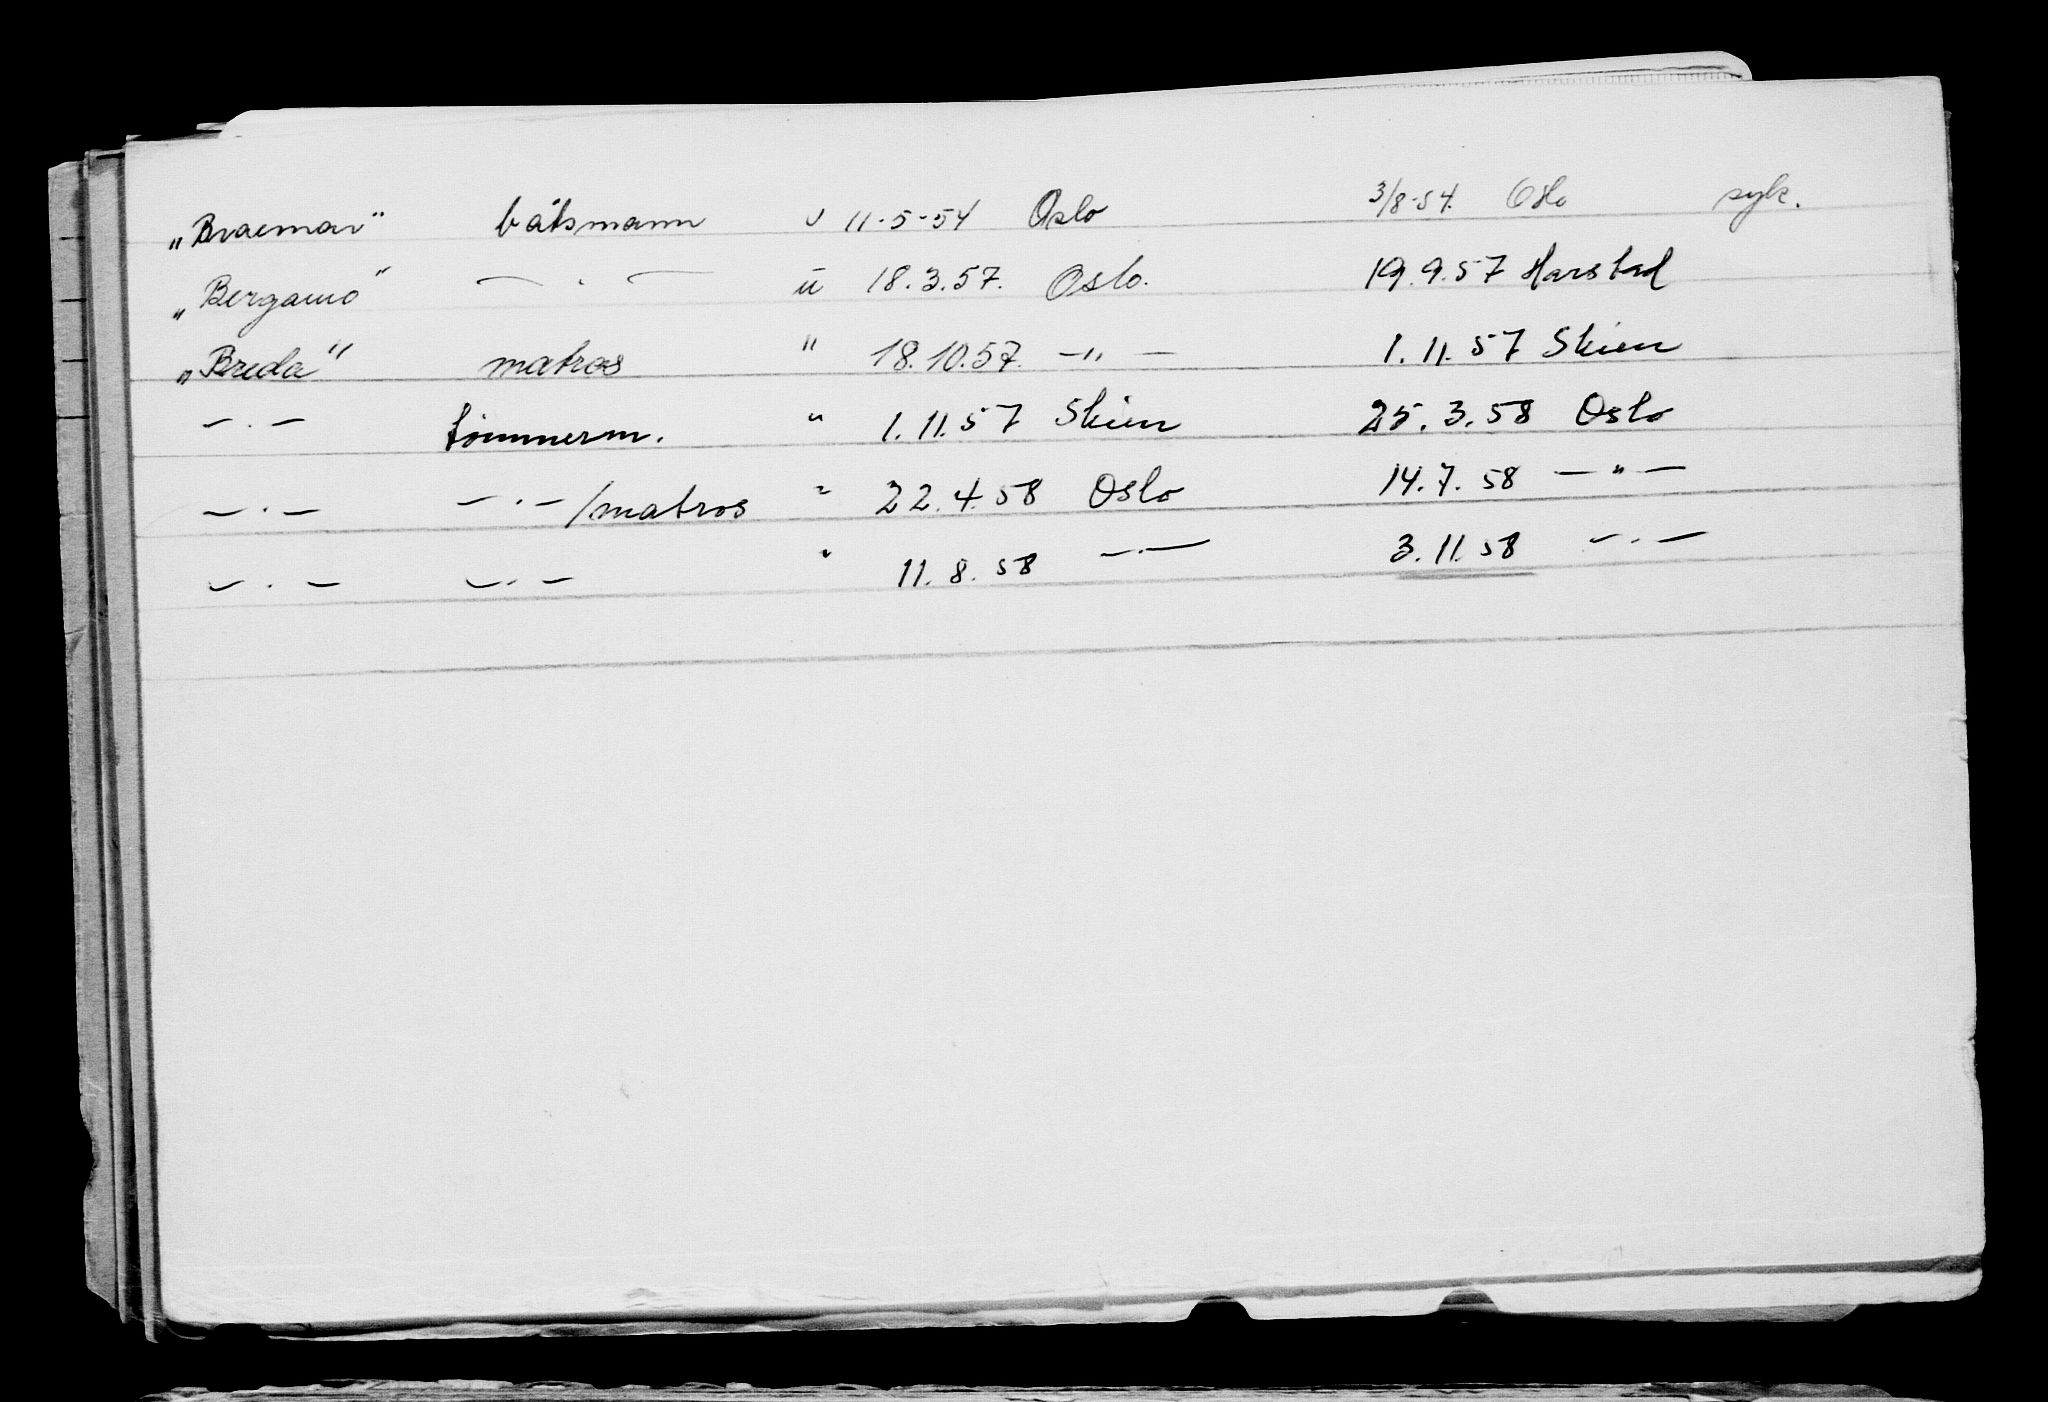 „Braemar" båtsmann u 11-5-54 Oslo 3/8-54. Oslo syk.
„Bergamo" — · — ū 18.3.57. Oslo. 19.9.57 Harstad
„Breda" matros " 18.10.57. —"— 1.11.57 Skien
— · — tømmerm. " 1.11.57 Skien 25.3.58 Oslo
— · — — · —/matros " 22.4.58 Oslo 14.7.58 —"—
— · — — · — " 11.8.58 — · — 3.11.58 — · —